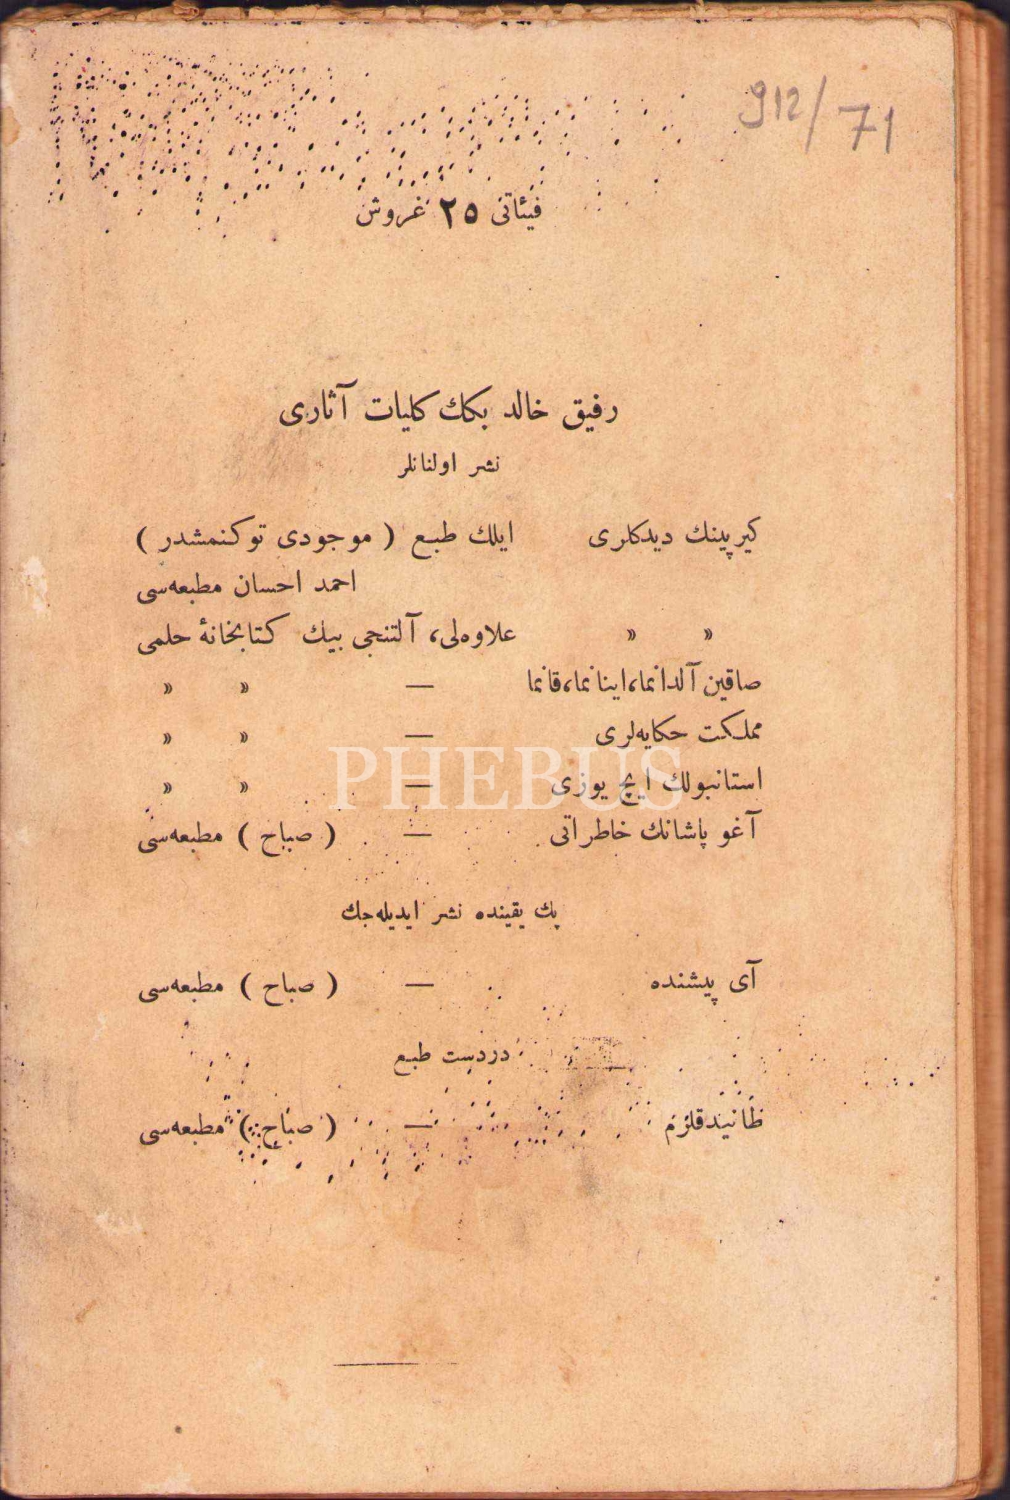 912/71
فیئاتی ٢٥ غروش
رفیق خالد بكك كلیات آثاری
نشر اولنانلر
كیرپینك دیدكلری ایلك طبع ( موجودی توكنمشدر )
احمد احسان مطبعه‌سی
» » علاوه‌لی، آلتنجی بیك كتابخانهٔ حلمی
صاقین آلدانما،اینانما،قانما — » »
مملكت حكایه‌لری — » »
PHEBUS
استانبولك ایچ یوزی — » »
آغو پاشانك خاطراتی — ( صباح ) مطبعه‌سی
پك یقینده نشر ایدیله‌جك
آی پیشنده — ( صباح ) مطبعه‌سی
دردست طبع
طانیدقلرم — ( صباح ) مطبعه‌سی